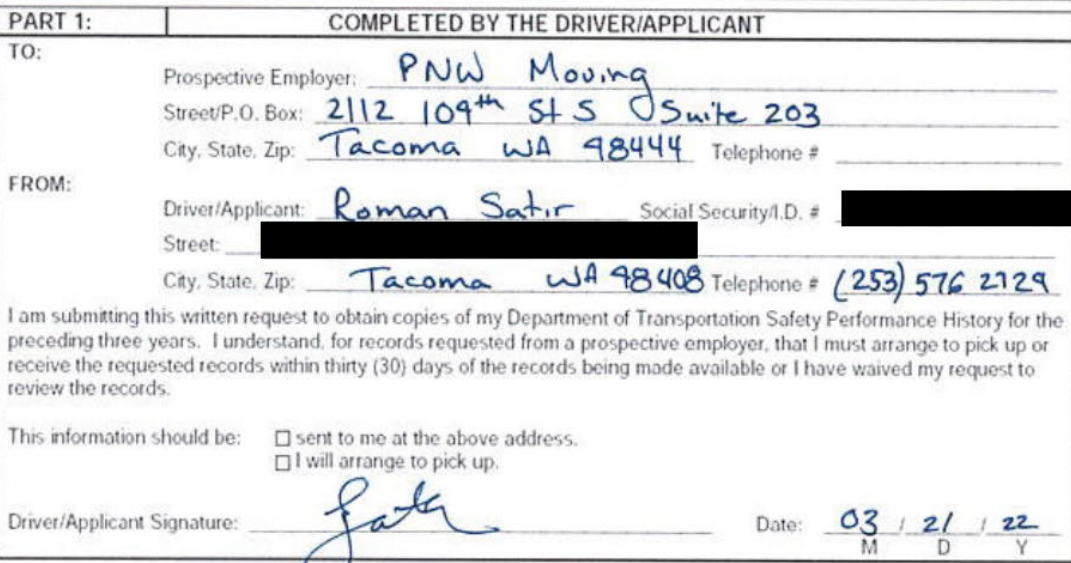 PART 1: COMPLETED BY THE DRIVER/APPLICANT
TO:
Prospective Employer: PNW Moving
Street/P.O. Box: 2112 109th St S Suite 203
City, State, Zip: Tacoma WA 98444 Telephone #
FROM:
Driver/Applicant: Roman Satir Social Security/I.D. #
Street:
City, State, Zip: Tacoma WA 98408 Telephone # (253) 576 2129
I am submitting this written request to obtain copies of my Department of Transportation Safety Performance History for the
preceding three years. I understand, for records requested from a prospective employer, that I must arrange to pick up or
receive the requested records within thirty (30) days of the records being made available or I have waived my request to
review the records.
This information should be: ☐ sent to me at the above address.
☐ I will arrange to pick up.
Driver/Applicant Signature: Date: 03 / 21 / 22
M D Y